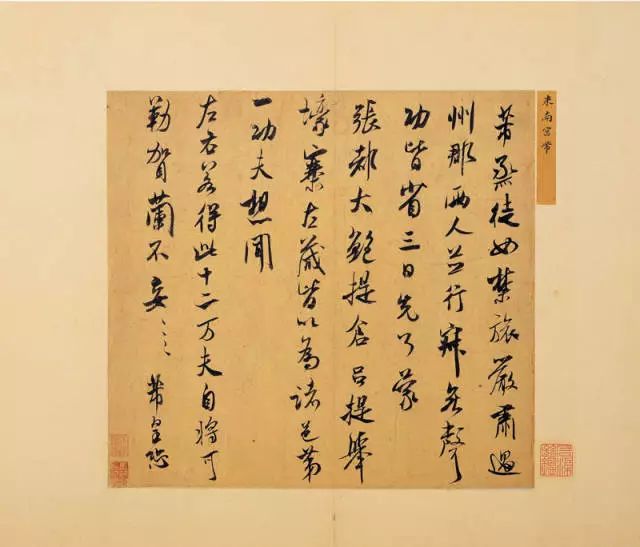 米南宮
芾烝徒如禁旅嚴肅過
州郡兩人並行寂無聲
功皆省三日先了蒙
張都大鮑提倉呂提舉
壕寨左藏皆以為諸邑第
一功夫想聞
左右若得此十二万夫自將可
勒賀蘭不妄〻〻 芾皇恐